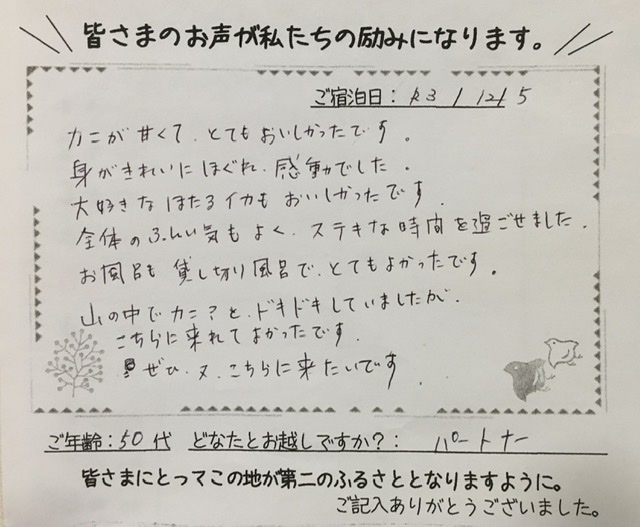 皆さまのお声が私たちの励みになります。
ご宿泊日: R3 / 12/ 5
カニが甘くて、とてもおいしかったです。
身がきれいにほぐれ、感動でした。
大好きなほたるイカもおいしかったです。
全体のふんい気もよく、ステキな時間を過ごせました。
お風呂も貸し切り風呂で、とてもよかったです。
山の中でカニ？と、ドキドキしていましたが、
こちらに来れてよかったです。
ぜひ、又、こちらに来たいです。
ご年齢:50代 どなたとお越しですか？: パートナー
皆さまにとってこの地が第二のふるさととなりますように。
ご記入ありがとうございました。